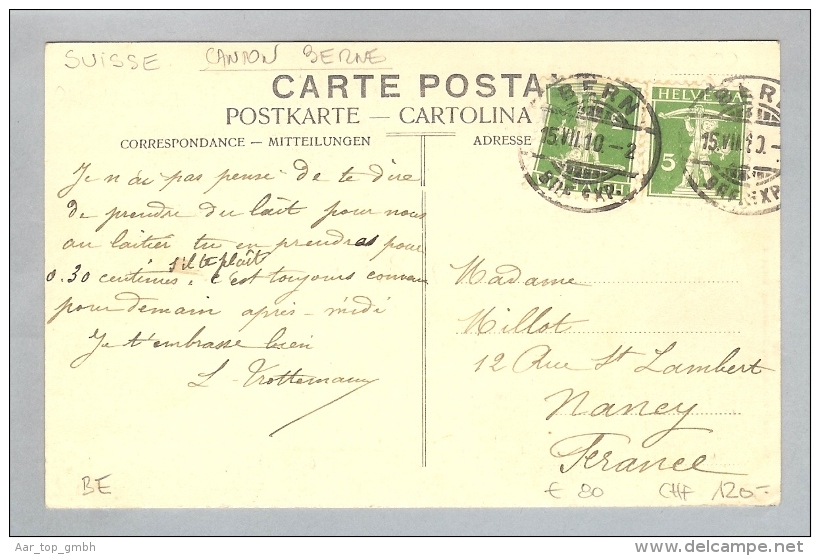 SUISSE CANTON BERNE
CARTE POSTA
POSTKARTE — CARTOLINA
CORRESPONDANCE — MITTEILUNGEN
ADRESSE
BERN
15.VII.10.-2
BRF. EXP.
HELVETIA
5
BERN
15.VII.10.-
BRF. EXP
Je n'ai pas pensé de te dire
de prendre du lait pour nous
au laitier tu en prendras pour
s'il te plaît
0.30 centimes. c'est toujours convenu
pour demain après-midi
Je t'embrasse bien
L. Trottemann
Madame
Millot
12 Rue St Lambert
Nancy
France
BE
€ 80 CHF 120.-
Aar_top_gmbh
www.delcampe.net